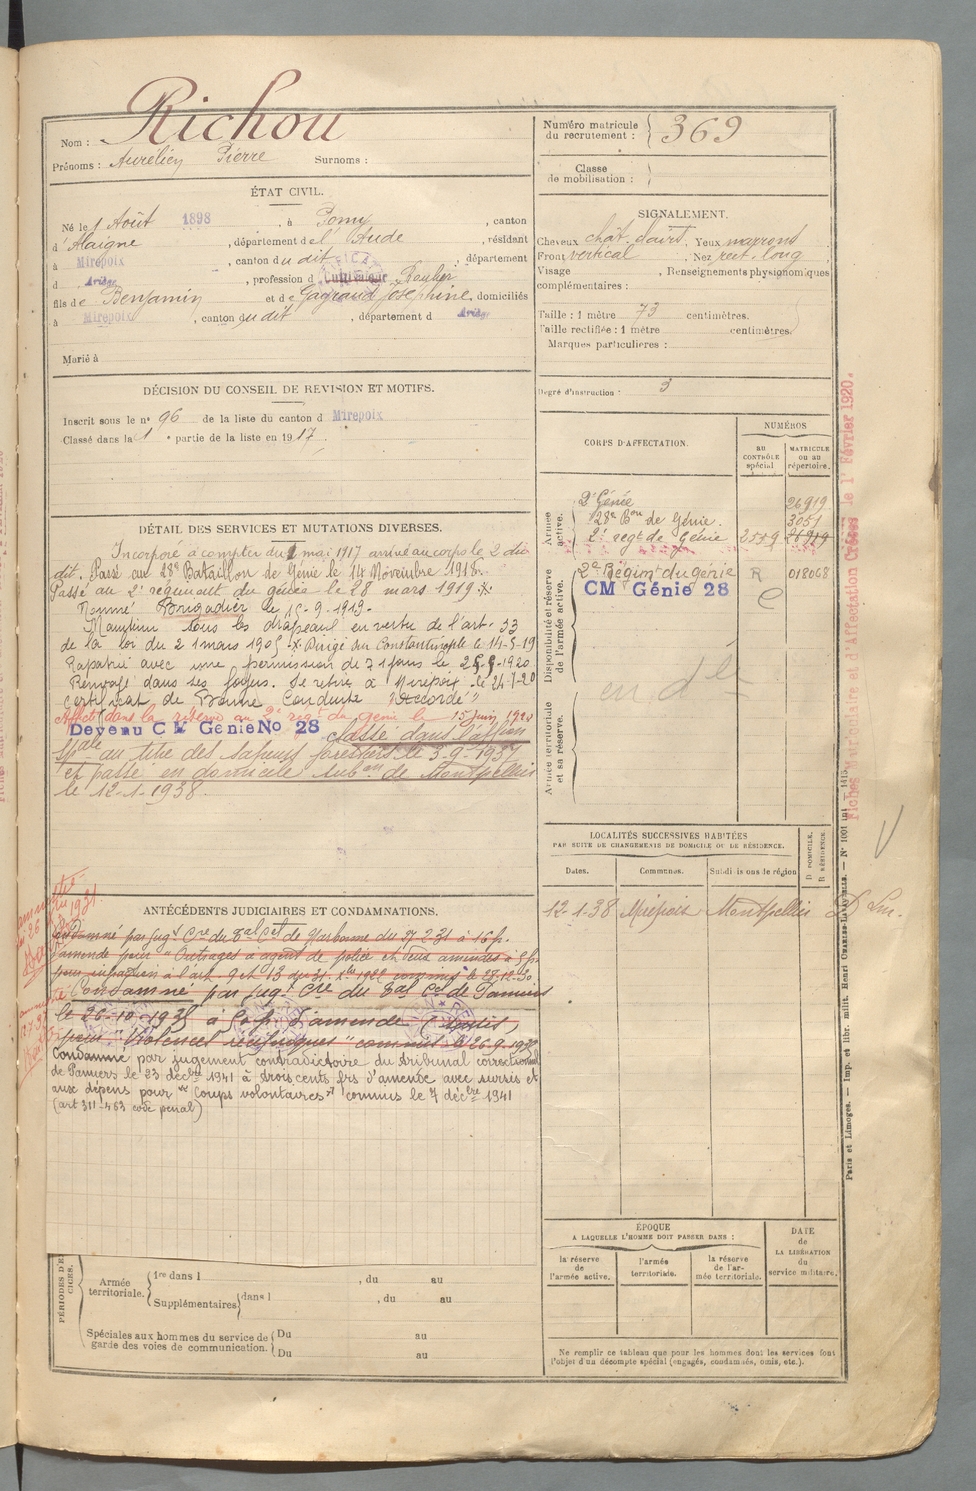 Richou
Nom :
Prénoms : Aurélien Pierre Surnoms :
ÉTAT CIVIL.
Né le 1 Août 1898, à Pomy, canton
d'Alaigne, département de l'Aude, résidant
à Mirepoix, canton du dit, département
d Ariège, profession de Cultivateur Roulier
fils de Benjamin et de Gagraud Joséphine, domiciliés
à Mirepoix, canton du dit, département d Ariège
Marié à
DÉCISION DU CONSEIL DE REVISION ET MOTIFS.
Inscrit sous le n° 96 de la liste du canton d Mirepoix
Classé dans la 1 e partie de la liste en 1917.
DÉTAIL DES SERVICES ET MUTATIONS DIVERSES.
Incorporé à compter du 1 mai 1917 arrivé au corps le 2 du
dit. Passé au 28e Bataillon de Génie le 14 Novembre 1918.
Passé au 2e régiment du génie le 28 mars 1919 .x.
Nommé Brigadier le 15-9-1919.
Maintenu sous les drapeaux en vertu de l'art. 33
de la loi du 2 1 mars 1905 .x. Dirigé sur Constantinople le 14-5-19
Rapatrié avec une permission de 71 jours le 25-5-1920
Renvoyé dans ses foyers. Se retire à Mirepoix le 24-7-20
certificat de Bonne Conduite "Accordé"
Affecté dans la réserve au 2e régt du génie le 15 Juin 1920
Devenu C M Génie No 28 classé dans l'affon
Sale au titre des sapeurs forestiers le 3-9-1937
et passé en domicile subon de Montpellier
le 12-1-1938.
ANTÉCÉDENTS JUDICIAIRES ET CONDAMNATIONS.
Condamné par Jugt Cre du Bal Cel de Narbonne du 27-2-31 à 16 f.
d'amende pour "Outrages à agent de police et deux amendes à 5 f.
pour infraction à l'art. 9 et 13 commis le 28-12-30
Condamné par Jugt Cre du Bal Cel de Pamiers
le 26-10-1935 à 50 f. d'amende (sursis)
pour "Violences réciproques" commis le 26-9-1935
Condamné par jugement contradictoire du tribunal correctionnel
de Pamiers le 23 décbre 1941 à trois cents frs d'amende avec sursis et
aux dépens pour "Coups volontaires" commis le 7 décbre 1941
(art 311-463 code pénal)
PÉRIODES D'EXERCICES.
Armée territoriale.
1re dans l , du au
Supplémentaires dans l , du au
Spéciales aux hommes du service de garde des voies de communication.
Du au
Du au
Numéro matricule du recrutement : 369
Classe de mobilisation :
SIGNALEMENT.
Cheveux chât. clairs. Yeux marrons
Front vertical. Nez rect. long
Visage , Renseignements physionomiques
complémentaires :
Taille : 1 mètre 73 centimètres.
Taille rectifiée : 1 mètre centimètres.
Marques particulières :
Degré d'instruction : 3
CORPS D'AFFECTATION.
NUMÉROS
au contrôle spécial
MATRICULE ou au répertoire.
Armée active.
2e Génie 26919
28e Bon de Génie. 3051
2e régt de Génie 2559 26919
Disponibilité et réserve de l'armée active.
2e Régimt du génie R 018068
CM Génie 28
Armée territoriale et sa réserve.
LOCALITÉS SUCCESSIVES HABITÉES
PAR SUITE DE CHANGEMENTS DE DOMICILE OU DE RÉSIDENCE.
D DOMICILE.
R RÉSIDENCE.
Dates. Communes. Subdivisions de région
12-1-38 Mirepoix Montpellier D
ÉPOQUE
A LAQUELLE L'HOMME DOIT PASSER DANS :
la réserve de l'armée active.
l'armée territoriale.
la réserve de l'armée territoriale.
DATE de LA LIBÉRATION du service militaire.
Ne remplir ce tableau que pour les hommes dont les services font
l'objet d'un décompte spécial (engagés, condamnés, omis, etc.).
Fiches et d'Affectation Créées le 1er Février 1920.
Paris et Limoges. — Imp. et libr. milit. Henri CHARLES-LAVAUZELLE. — N° 1001